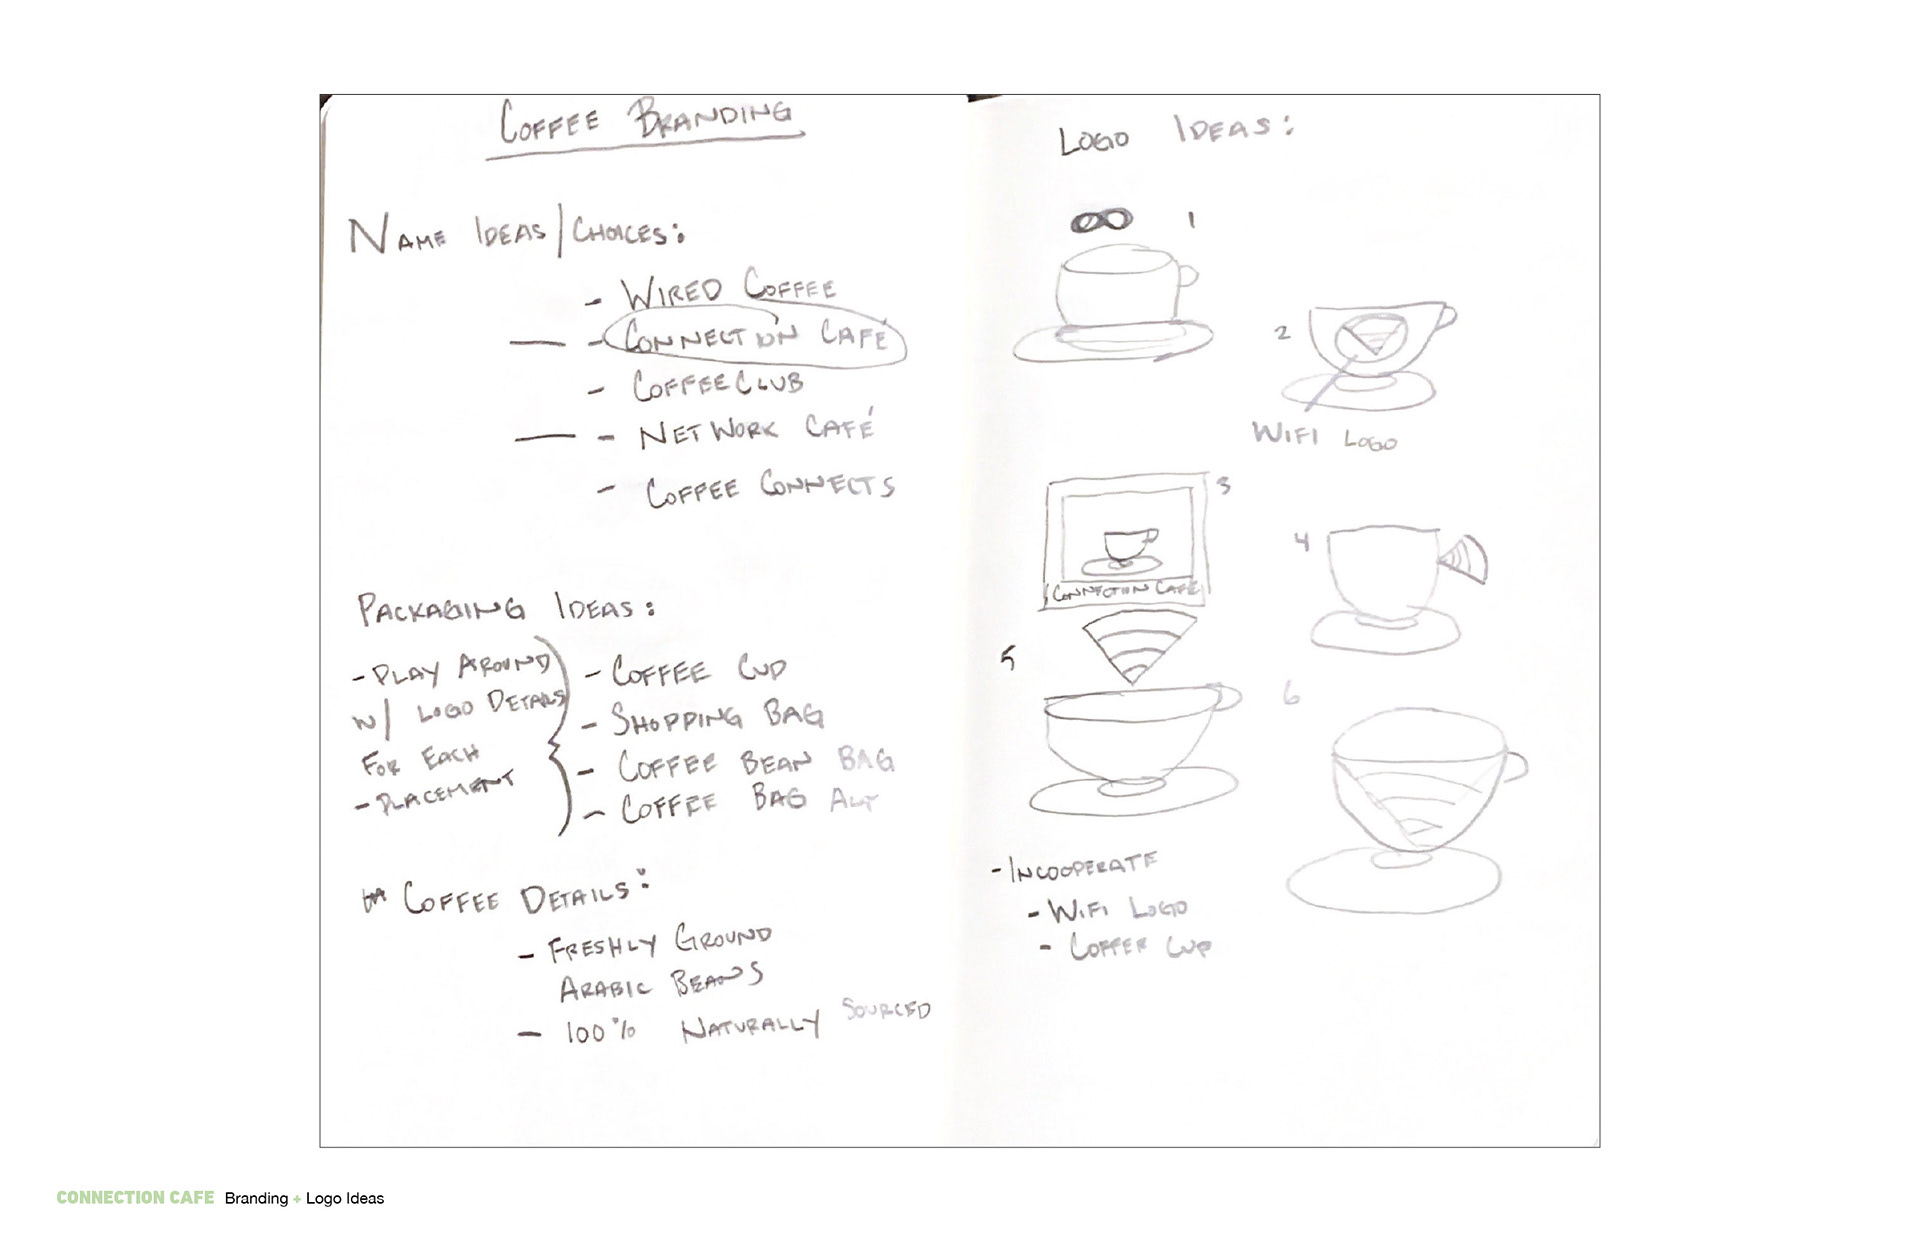 COFFEE BRANDING
NAME IDEAS/CHOICES:
- WIRED COFFEE
- CONNECTION CAFÉ
- COFFEE CLUB
- NETWORK CAFÉ
- COFFEE CONNECTS
PACKAGING IDEAS:
- PLAY AROUND
W/ LOGO DETAILS
FOR EACH
- PLACEMENT
- COFFEE CUP
- SHOPPING BAG
- COFFEE BEAN BAG
- COFFEE BAG ALT
COFFEE DETAILS:
- FRESHLY GROUND
ARABIC BEANS
- 100% NATURALLY SOURCED
LOGO IDEAS:
1
2
WIFI LOGO
3
CONNECTION CAFE
4
5
6
- INCOOPERATE
- WIFI LOGO
- COFFEE CUP
CONNECTION CAFE Branding + Logo Ideas